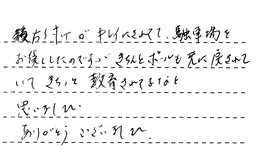 親方 がキレイにされてて、駐車場を
お貸ししたのですが きちんとポールも元に戻されて
いて きちっと 教育されてるなと
思いました。
ありがとう ございました。